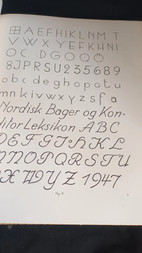 AEFHIKLNMT
VWXYEFKHNI
OCDGOOÖ
8JPRSU235689
abcdeghopqtu
mnklivwxyzsfa
Nordisk Bager og Kon-
ditor Leksikon ABC
DEFGIJHKL
MNOPQRSTU
ÆXYZ 1947